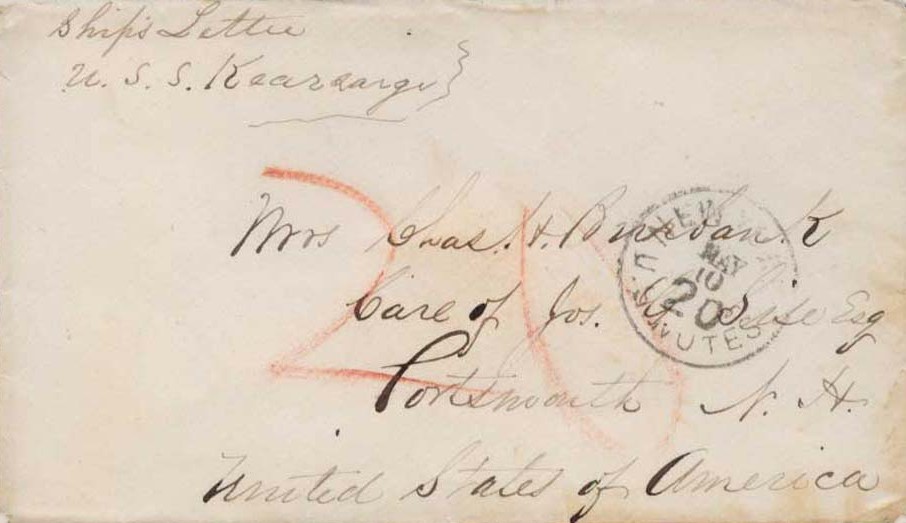 Ship's Letter
U. S. S. Kearsarge
Mrs Chas. H. Burbank
Care of Jos. Sise Esq
Portsmouth N. H.
United States of America
NEW
MAY
10
20
20